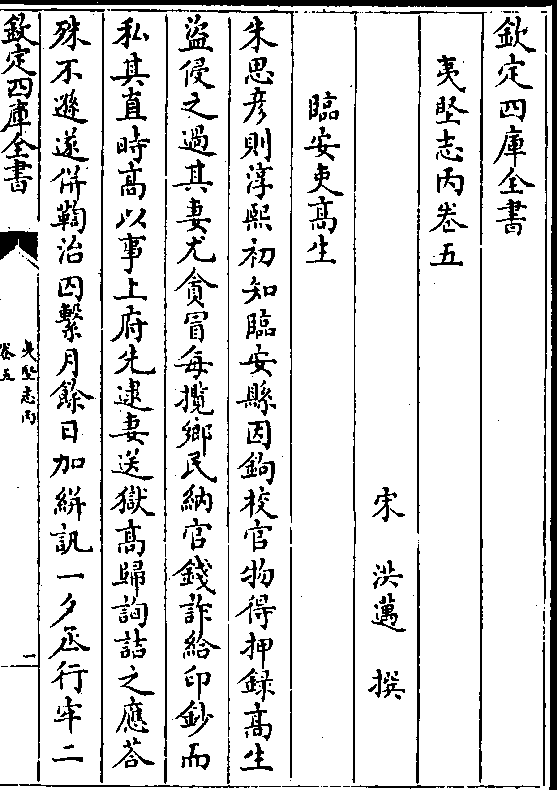 欽定四庫全書
夷堅志丙卷五
宋 洪邁 撰
臨安吏高生
朱思彦則淳熙初知臨安縣因鉤校官物得押録高生
盜侵之過其妻尤貪冒每攬鄉民納官錢詐給印鈔而
私其直時高以事上府先逮妻送獄高歸詢詰之應答
殊不遜遂併鞫治囚繫月餘日加絣訊一夕丞行牢二
欽定四庫全書
夷堅志丙
卷五
一